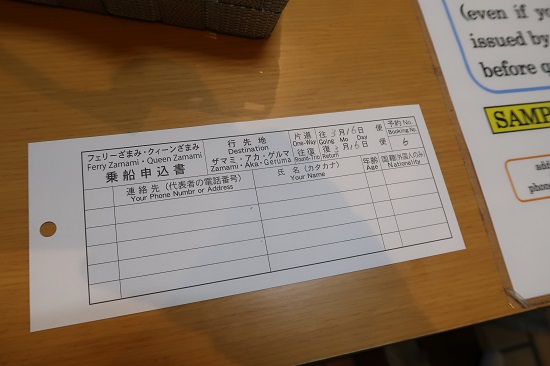 フェリーざまみ・クィーンざまみ
Ferry Zamami・Queen Zamami
乗船申込書
行先地
Destination
ザマミ・アカ・ゲルマ
Zamami・Aka・Geruma
片道
One-Way
往復
Round-Trip
往 3月16日 便
Going Mo Day
復 3月16日 便
Return Mo. Day
予約No.
Booking No.
6
連絡先(代表者の電話番号)
Your Phone Numbr or Address
氏名(カタカナ)
Your Name
年齢
Age
国籍(外国人のみ)
Nationality
(even if yo
issued by
before q
SAMP
add
phone